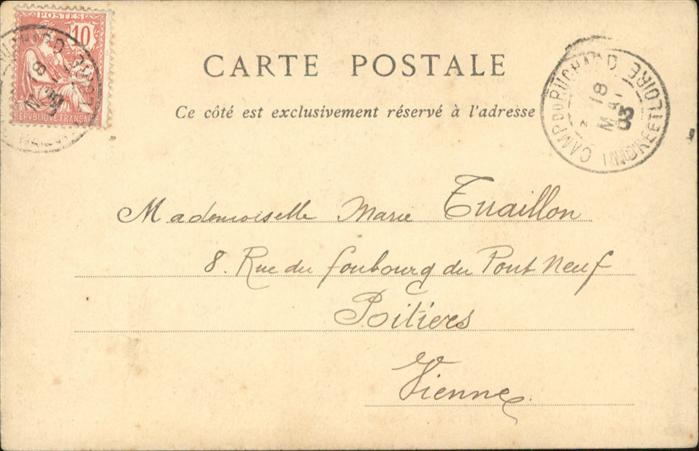 POSTES
10
REPUBLIQUE FRANÇAISE
CARTE POSTALE
Ce côté est exclusivement réservé à l'adresse
CAMP DU RUCHARD
18
MAI
03
INDRE ET LOIRE
Mademoiselle Marie Tuaillon
8. Rue du foubourg du Pont Neuf
Poitiers
Vienne